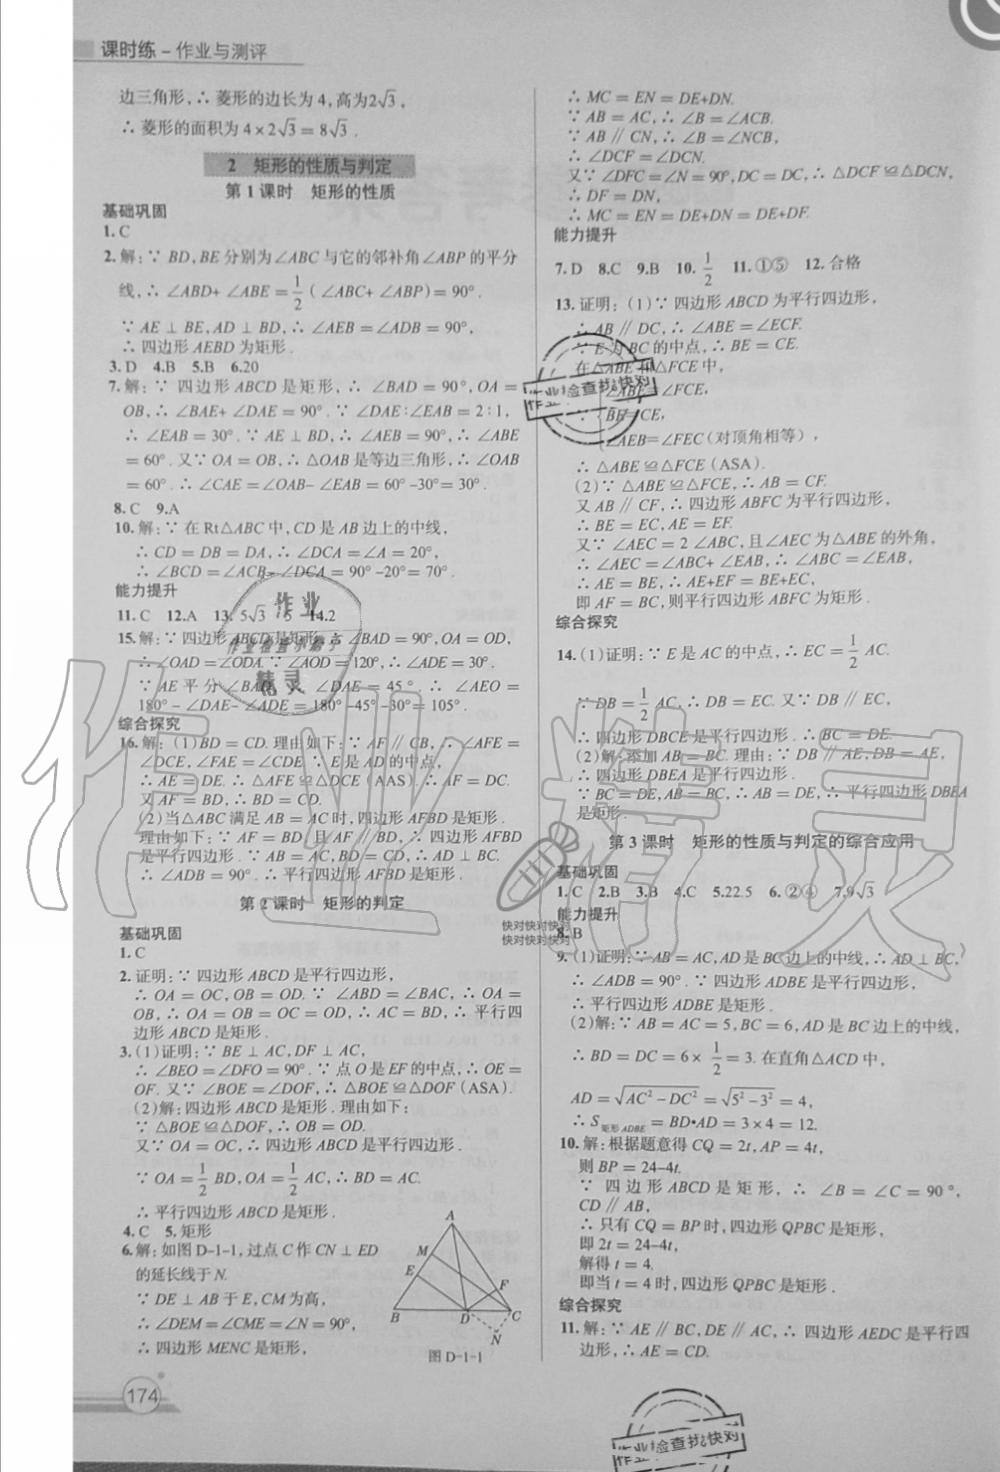 课时练－作业与测评
边三角形,∴菱形的边长为4,高为2√3,
∴菱形的面积为4×2√3=8√3.
2 矩形的性质与判定
第1课时 矩形的性质
基础巩固
1.C
2.解:∵BD,BE分别为∠ABC与它的邻补角∠ABP的平分
线,∴∠ABD+∠ABE=1/2(∠ABC+∠ABP)=90°.
∵AE⊥BE,AD⊥BD,∴∠AEB=∠ADB=90°,
∴四边形AEBD为矩形.
3.D 4.B 5.B 6.20
7.解:∵四边形ABCD是矩形,∴∠BAD=90°,OA=
OB,∴∠BAE+∠DAE=90°.∵∠DAE∶∠BAE=2∶1,
∴∠EAB=30°.∵AE⊥BD,∴∠AEB=90°,∴∠ABE
=60°.又∵OA=OB,∴△OAB是等边三角形,∴∠OAB
=60°.∴∠CAE=∠OAB-∠EAB=60°-30°=30°.
8.C 9.A
10.解:∵在Rt△ABC中,CD是AB边上的中线,
∴CD=DB=DA,∴∠DCA=∠A=20°,
∴∠BCD=∠ACB-∠DCA=90°-20°=70°.
能力提升
11.C 12.A 13.5√3 5 14.2
15.解:∵四边形ABCD是矩形,∴∠BAD=90°,OA=OD,
∴∠OAD=∠ODA.∵∠AOD=120°,∴∠ADE=30°.
∵AE平分∠BAD,∴∠DAE=45°.∴∠AEO=
180°-∠DAE-∠ADE=180°-45°-30°=105°.
综合探究
16.解:(1)BD=CD.理由如下:∵AF∥CB,∴∠AFE=
∠DCE,∠FAE=∠CDE.∵E是AD的中点,
∴AE=DE.∴△AFE≌△DCE(AAS).∴AF=DC.
又AF=BD,∴BD=CD.
(2)当△ABC满足AB=AC时,四边形AFBD是矩形.
理由如下:∵AF=BD,且AF∥BD,∴四边形AFBD
是平行四边形.∵AB=AC,BD=CD,∴AD⊥BC.
∴∠ADB=90°.∴平行四边形AFBD是矩形.
第2课时 矩形的判定
基础巩固
1.C
2.证明:∵四边形ABCD是平行四边形,
∴OA=OC,OB=OD.∵∠ABD=∠BAC,∴OA=
OB,∴OA=OB=OC=OD,∴AC=BD,∴平行四
边形ABCD是矩形.
3.(1)证明:∵BE⊥AC,DF⊥AC,
∴∠BEO=∠DFO=90°.∵点O是EF的中点,∴OE=
OF.又∵∠BOE=∠DOF,∴△BOE≌△DOF(ASA).
(2)解:四边形ABCD是矩形.理由如下:
∵△BOE≌△DOF,∴OB=OD.
又∵OA=OC,∴四边形ABCD是平行四边形.
∵OA=1/2BD,OA=1/2AC,∴BD=AC.
∴平行四边形ABCD是矩形.
4.C 5.矩形
6.解:如图D-1-1,过点C作CN⊥ED
的延长线于N.
∵DE⊥AB于E,CM为高,
∴∠DEM=∠CME=∠N=90°,
∴四边形MENC是矩形.
A
M
E
F
B
D
C
N
图D-1-1
174
∴MC=EN=DE+DN.
∵AB=AC,∴∠B=∠ACB.
∵AB∥CN,∴∠B=∠NCB,
∴∠DCF=∠DCN.
又∵∠DFC=∠N=90°,DC=DC,∴△DCF≌△DCN,
∴DF=DN,
∴MC=EN=DE+DN=DE+DF.
能力提升
7.D 8.C 9.B 10.1/2 11.①⑤ 12.合格
13.证明:(1)∵四边形ABCD为平行四边形,
∴AB∥DC,∴∠ABE=∠ECF.
∵E为BC的中点,∴BE=CE.
在△ABE和△FCE中,
∠ABE=∠FCE,
∵BE=CE,
∠AEB=∠FEC(对顶角相等),
∴△ABE≌△FCE(ASA).
(2)∵△ABE≌△FCE,∴AB=CF.
又AB∥CF,∴四边形ABFC为平行四边形,
∴BE=EC,AE=EF.
又∵∠AEC=2∠ABC,且∠AEC为△ABE的外角,
∴∠AEC=∠ABC+∠EAB,∴∠ABC=∠EAB,
∴AE=BE,∴AE+EF=BE+EC,
即AF=BC,则平行四边形ABFC为矩形.
综合探究
14.(1)证明:∵E是AC的中点,∴EC=1/2AC.
∵DB=1/2AC,∴DB=EC.又∵DB∥EC,
∴四边形DBCE是平行四边形.∴BC=DE.
(2)解:添加AB=BC.理由:∵DB∥AE,DB=AE,
∴四边形DBEA是平行四边形.
∵BC=DE,AB=BC,∴AB=DE,∴平行四边形DBEA
是矩形.
第3课时 矩形的性质与判定的综合应用
基础巩固
1.C 2.B 3.B 4.C 5.22.5 6.②④ 7.9√3
能力提升
8.B
9.(1)证明:∵AB=AC,AD是BC边上的中线,∴AD⊥BC,
∴∠ADB=90°.∵四边形ADBE是平行四边形,
∴平行四边形ADBE是矩形.
(2)解:∵AB=AC=5,BC=6,AD是BC边上的中线,
∴BD=DC=6×1/2=3.在直角△ACD中,
AD=√(AC²-DC²)=√(5²-3²)=4,
∴S矩形ADBE=BD•AD=3×4=12.
10.解:根据题意得CQ=2t,AP=4t,
则BP=24-4t.
∵四边形ABCD是矩形,∴∠B=∠C=90°,
CD∥AB,
∴只有CQ=BP时,四边形QPBC是矩形,
即2t=24-4t,
解得t=4.
即当t=4时,四边形QPBC是矩形.
综合探究
11.解:∵AE∥BC,DE∥AC,∴四边形AEDC是平行四
边形,∴AE=CD.
作业
精灵
作业精灵
快对快对快对
快对快对快对
作业检查找快对
作业检查找快对